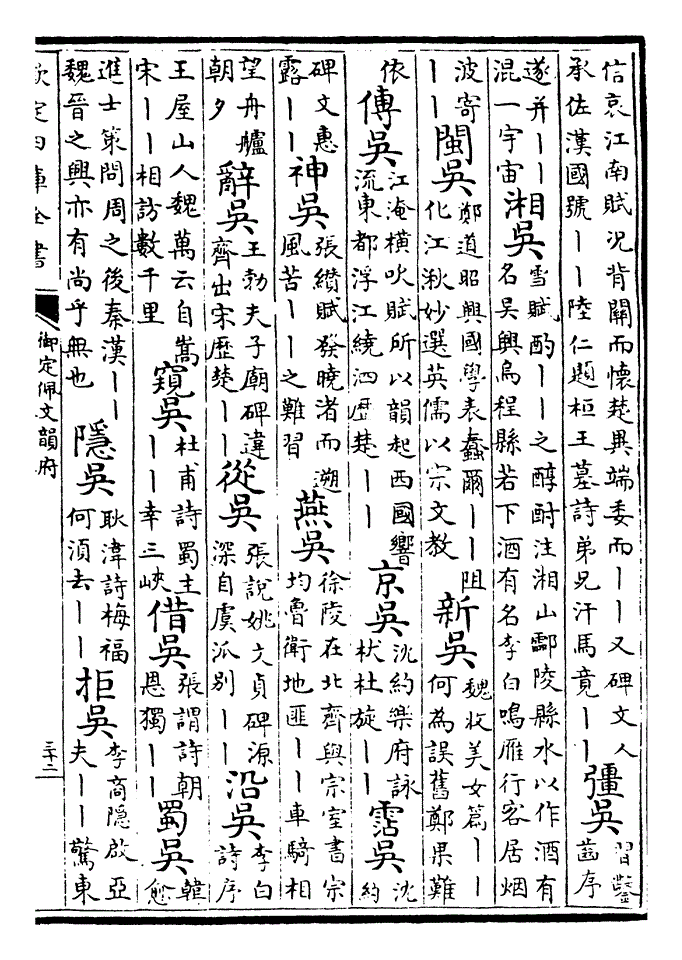 信哀江南賦況背關而懷楚異端委而丨丨又碑文人
承佐漢國號丨丨陸仁題桓王墓詩弟兄汗馬竟丨丨
彊吳
習鑿
齒序
遂并丨丨
混一宇宙
湘吳
雪賦酌丨丨之醇酎注湘山酃陵縣水以作酒有
名吳興烏程縣若下酒有名李白鳴雁行客居烟
波寄
丨丨
閩吳
鄭道昭興國學表蠢爾丨丨阻
化江湫妙選英儒以宗文教
新吳
魏收美女篇丨丨
何為誤舊鄭果難
依
傳吳
江淹橫吹賦所以韻起西國響
流東都浮江繞泗歴楚丨丨
京吳
沈約樂府詠
杕杜旋丨丨
霑吳
沈
約
碑文惠
露丨丨
神吳
張纘賦發曉渚而遡
風苦丨丨之難習
燕吳
徐陵在北齊與宗室書宗
均魯衛地匪丨丨車騎相
望舟艫
朝夕
辭吳
王勃夫子廟碑違
齊出宋歴楚丨丨
從吳
張說姚文貞碑源
深自虞派別丨丨
沿吳
李白
詩序
王屋山人魏萬云自嵩
宋丨丨相訪數千里
窺吳
杜甫詩蜀主
丨丨幸三峽
借吳
張謂詩朝
恩獨丨丨
蜀吳
韓
愈
進士策問周之後秦漢丨丨
魏晉之興亦有尚乎無也
隱吳
耿湋詩梅福
何湏去丨丨
拒吳
李商隱啟亞
夫丨丨驚東
欽定四庫全書
御定佩文韻府
三十二